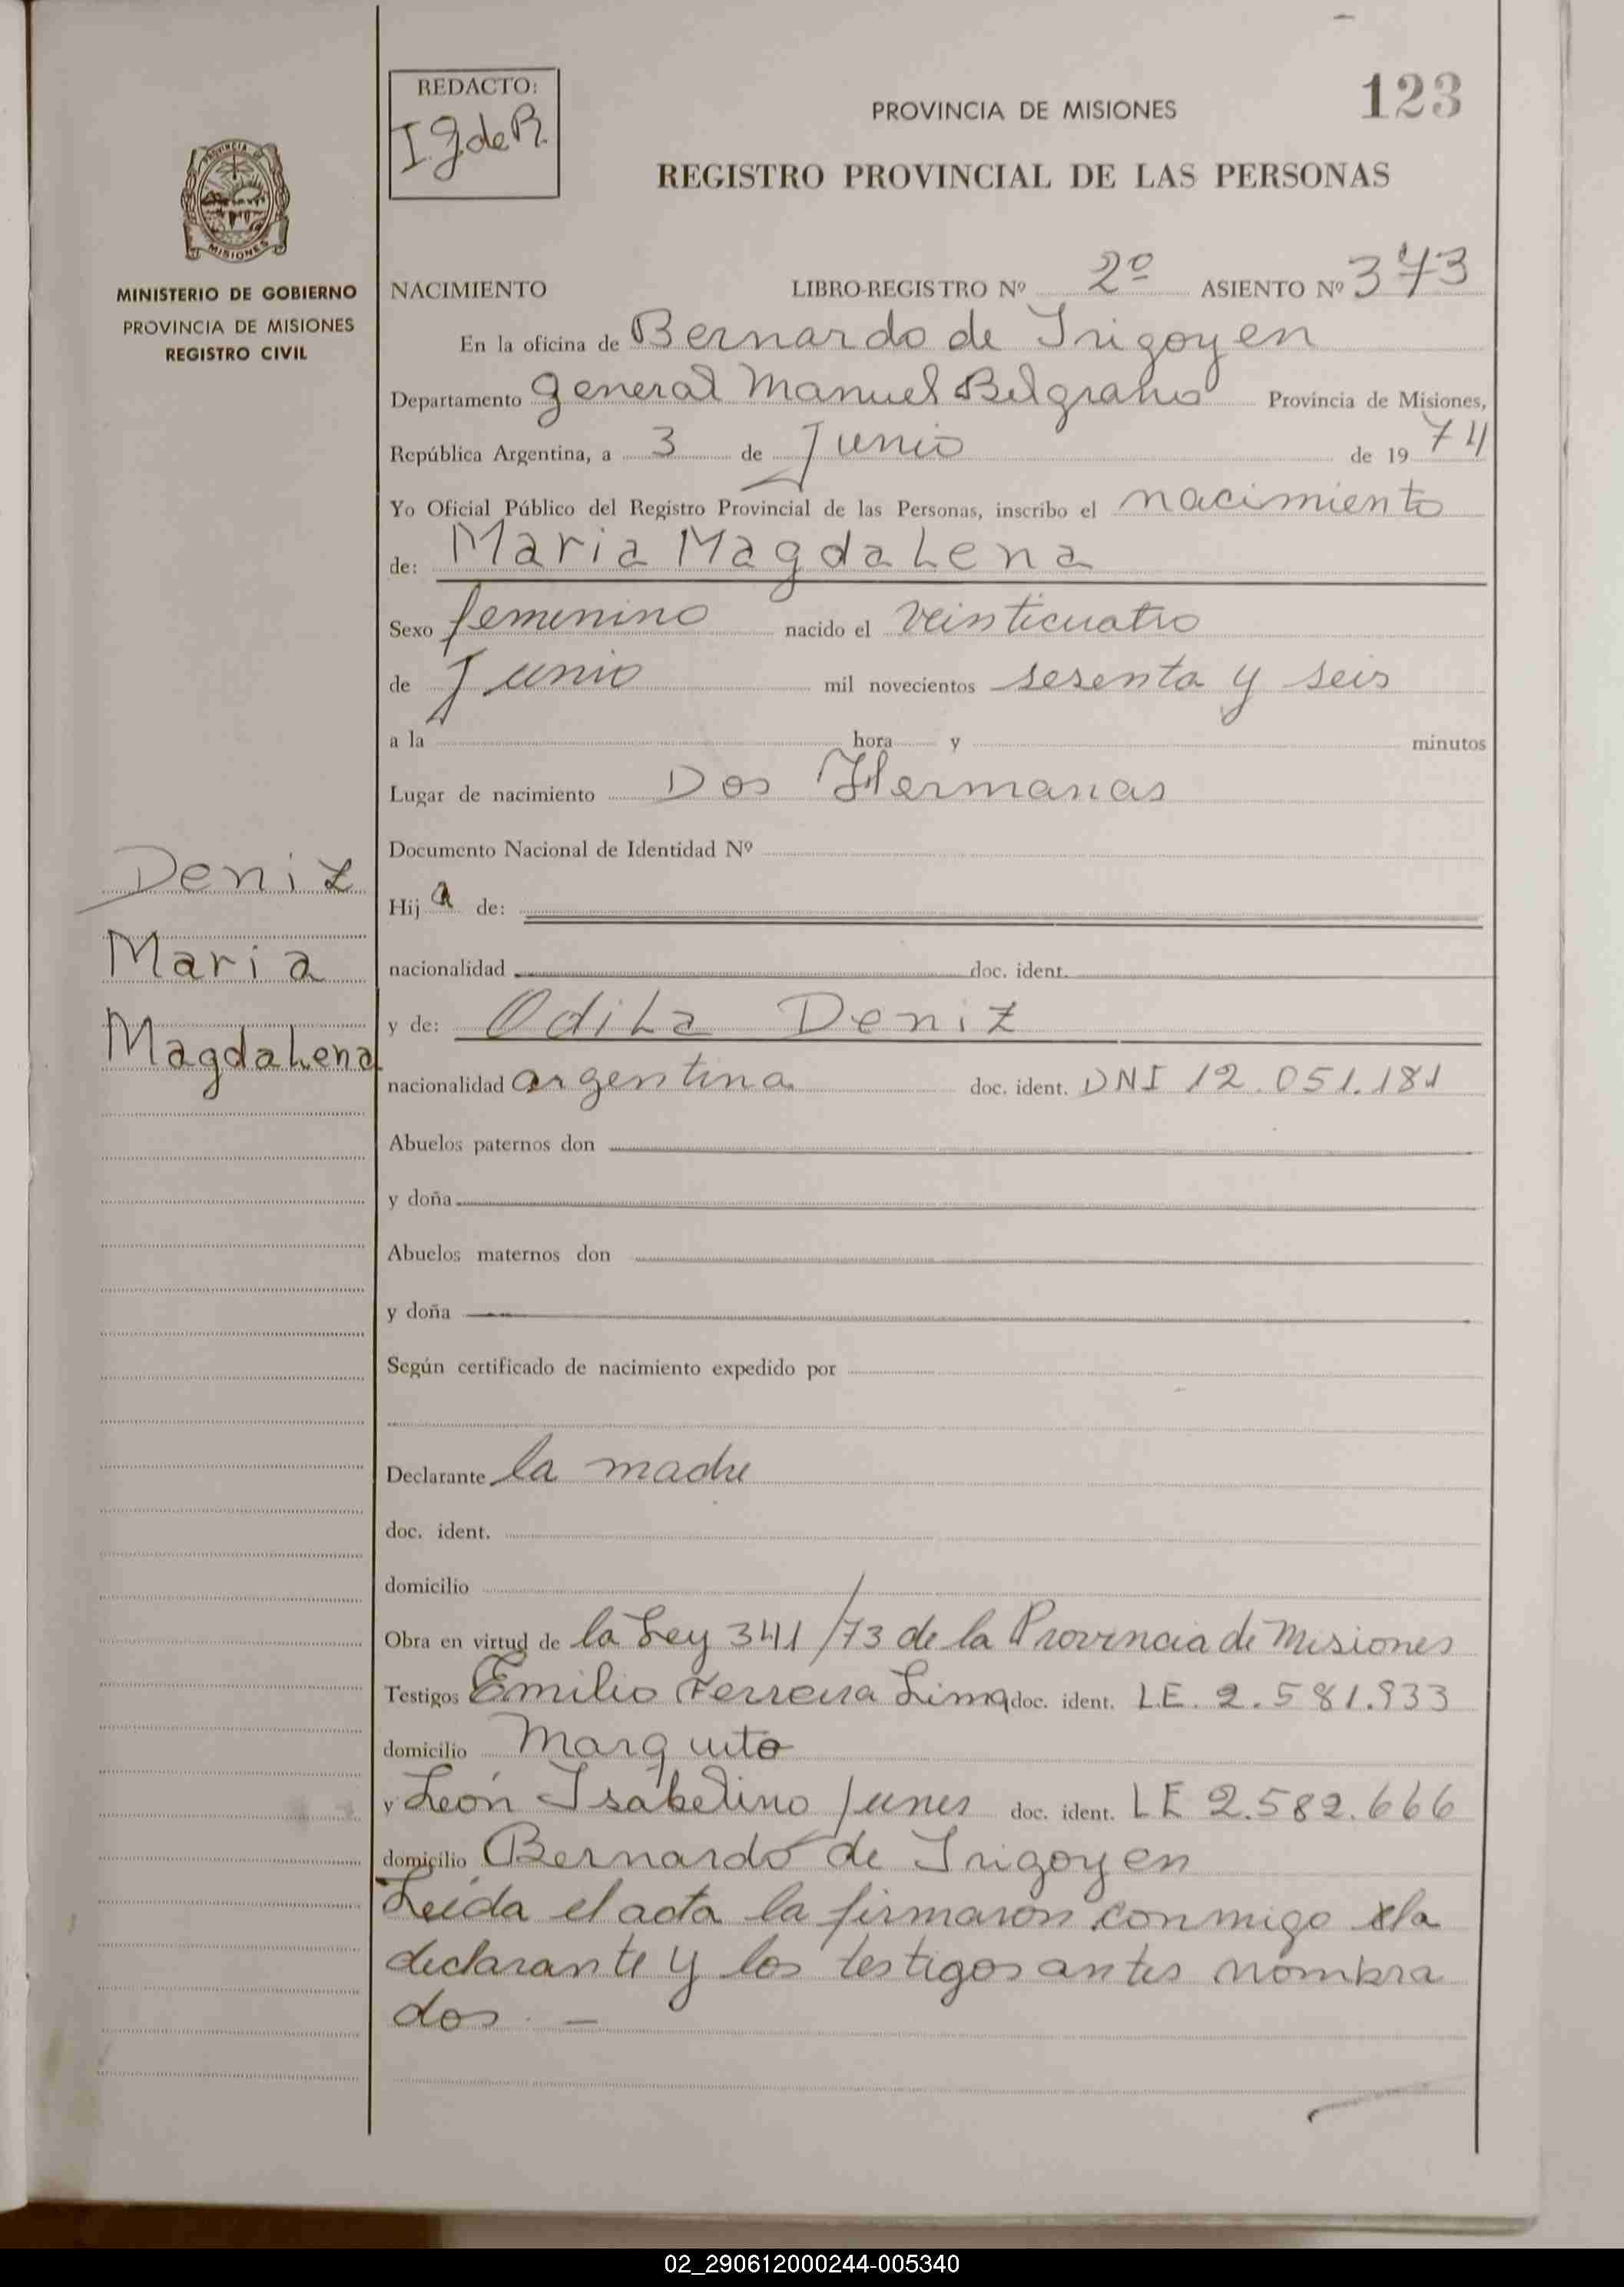 REDACTO:
I. g de R.
PROVINCIA DE MISIONES
123
REGISTRO PROVINCIAL DE LAS PERSONAS
PROVINCIA DE
MISIONES
MINISTERIO DE GOBIERNO
PROVINCIA DE MISIONES
REGISTRO CIVIL
NACIMIENTO LIBRO-REGISTRO Nº 2º ASIENTO Nº 373
En la oficina de Bernardo de Irigoyen
Departamento general Manuel Belgrano Provincia de Misiones,
República Argentina, a 3 de Junio de 19 74
Yo Oficial Público del Registro Provincial de las Personas, inscribo el nacimiento
de: Maria Magdalena
Sexo femenino nacido el veinticuatro
de Junio mil novecientos sesenta y seis
a la hora y minutos
Lugar de nacimiento Dos Hermanas
Documento Nacional de Identidad Nº
Deniz
Maria
Magdalena
Hij a de:
nacionalidad doc. ident.
y de: Odila Deniz
nacionalidad argentina doc. ident. DNI 12.051.181
Abuelos paternos don
y doña
Abuelos maternos don
y doña
Según certificado de nacimiento expedido por
Declarante la madre
doc. ident.
domicilio
Obra en virtud de la Ley 341/73 de la Provincia de Misiones
Testigos Emilio Ferreira Lima doc. ident. L.E. 2.581.933
domicilio Marquito
y León Isabelino Junes doc. ident. LE 2.582.666
domicilio Bernardo de Irigoyen
Leida el acta la firmaron conmigo la
declarante y los testigos antes nombra
dos. —
02_290612000244-005340